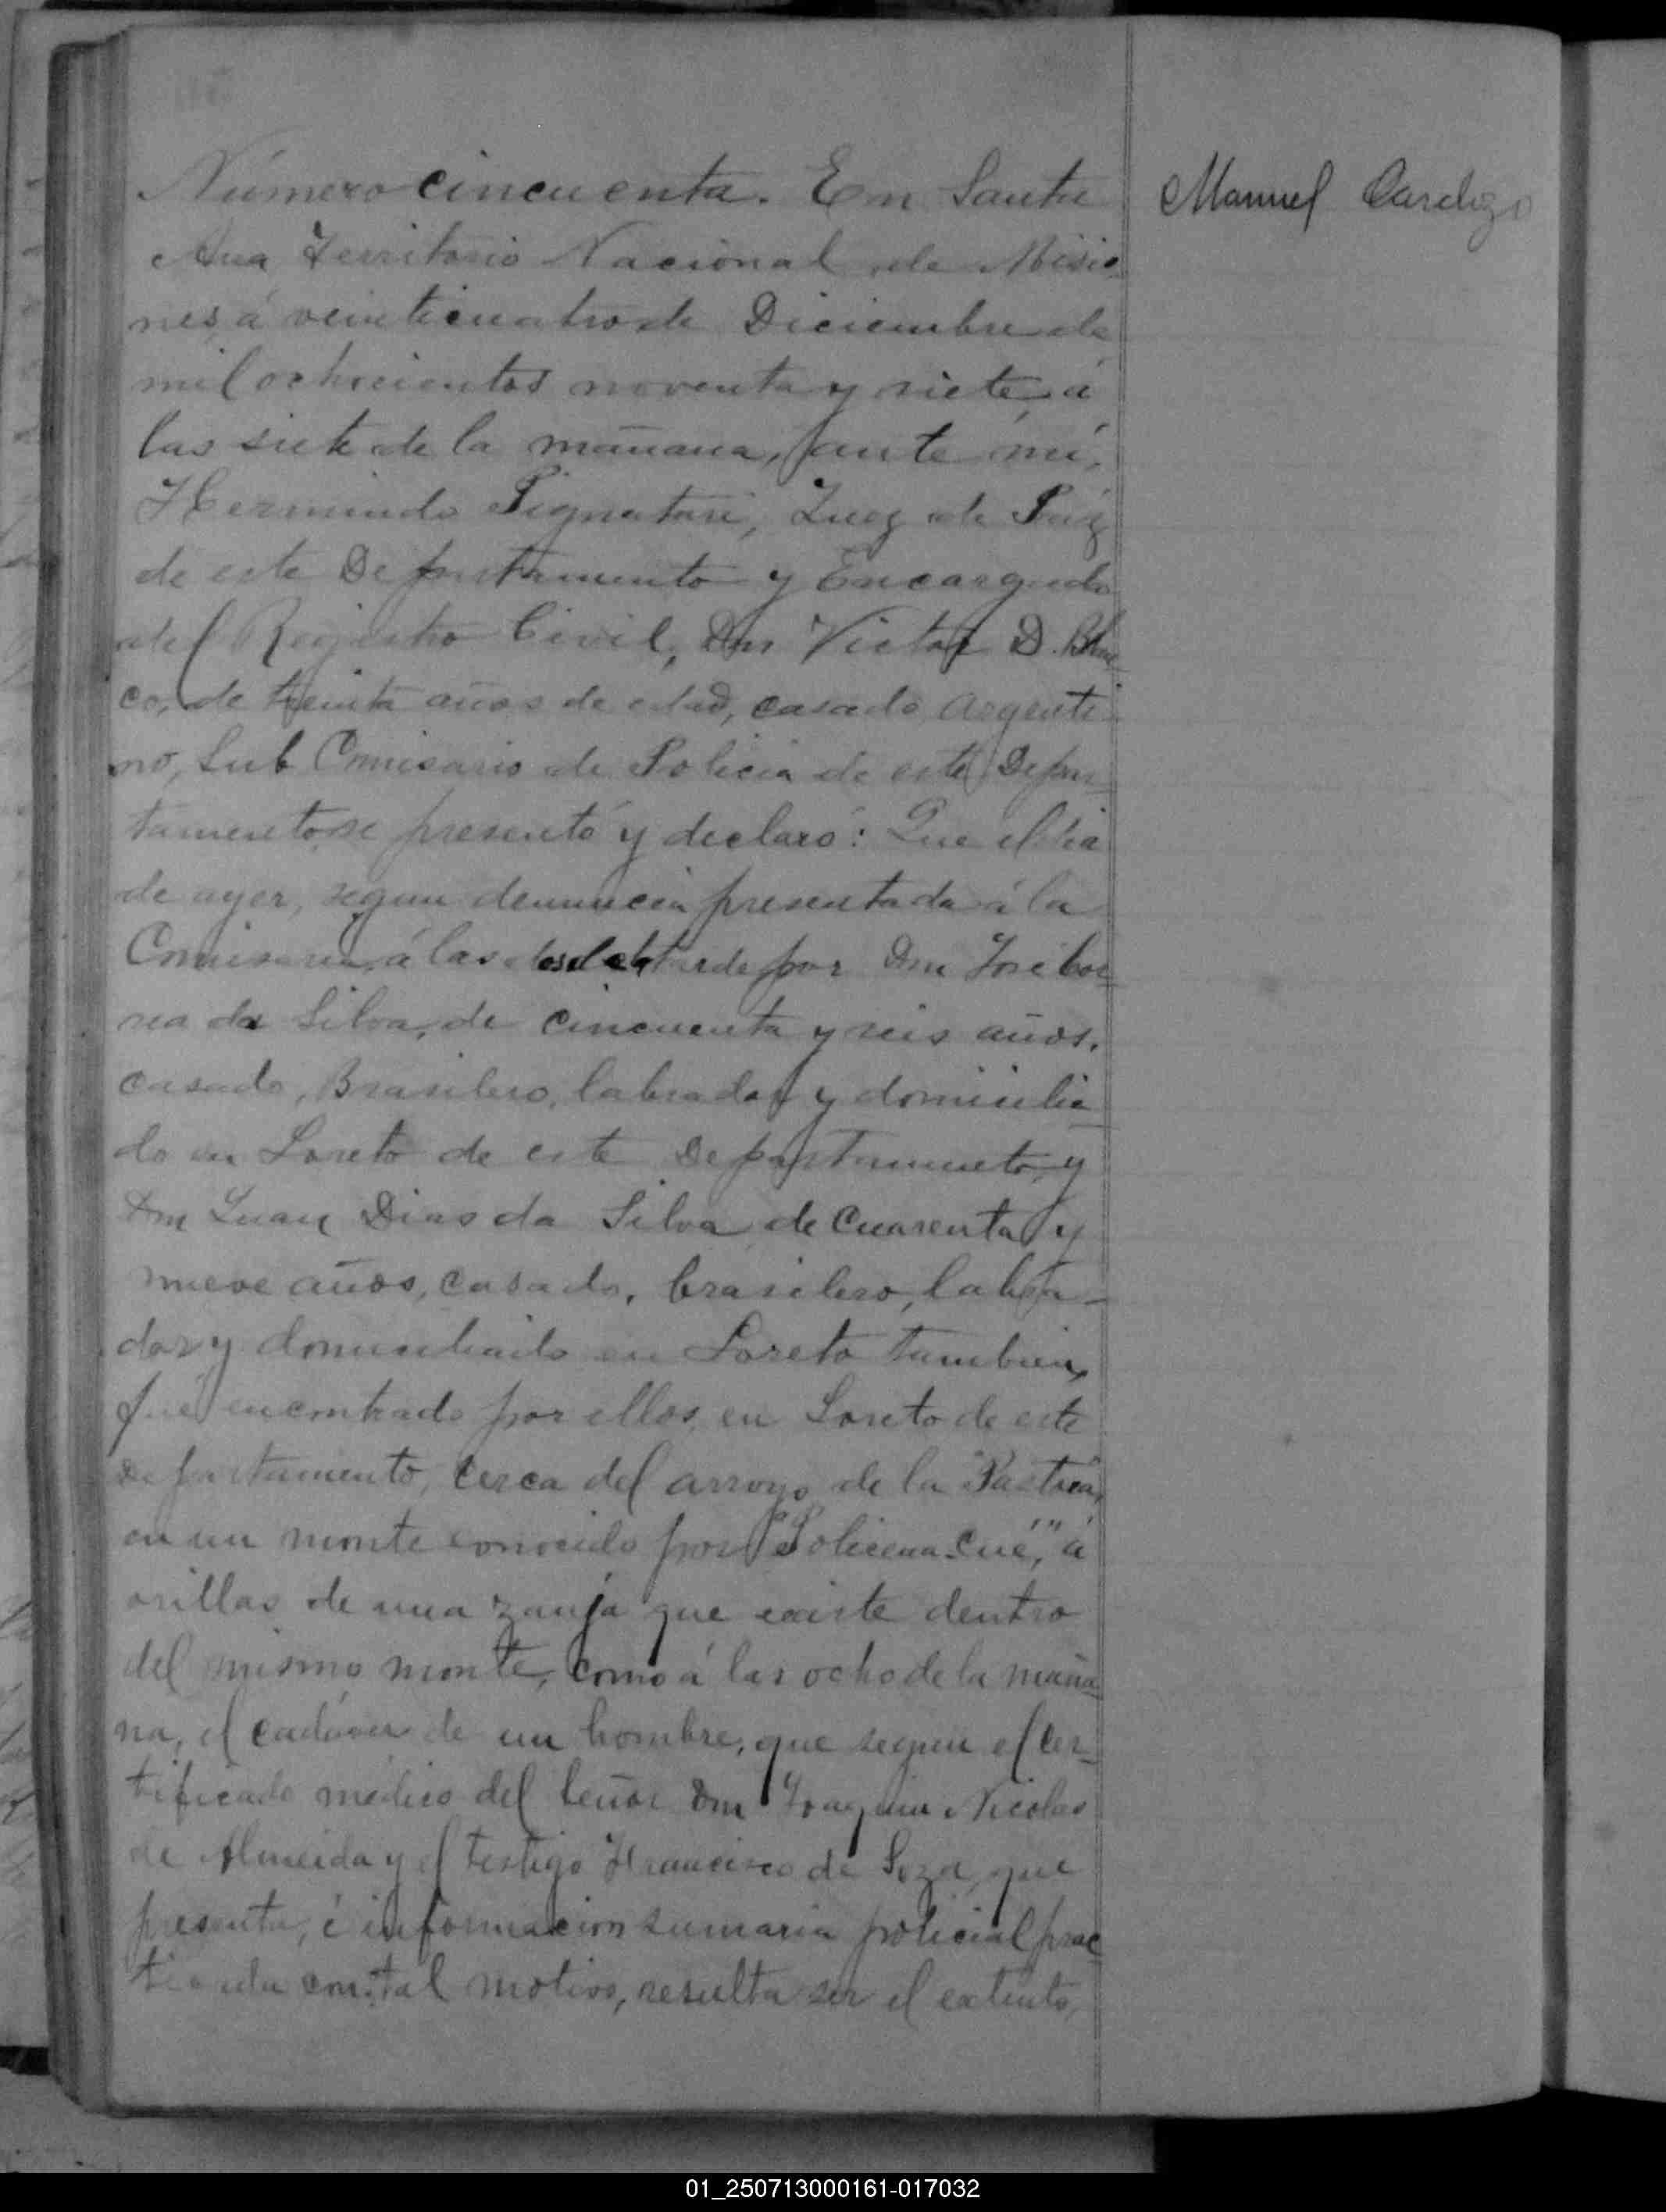 Número cincuenta. En Santa
Ana Territorio Nacional de Misio-
nes, á veinticuatro de Diciembre de
mil ochocientos noventa y siete, á
las siete de la mañana, ante mí,
Hermindo Pignatari, Juez de Paz
de este Departamento y Encargado
del Registro Civil, Dn Victor D. Blan-
co, de treinta años de edad, casado argenti-
no, Sub Comisario de Policia de este Depar-
tamento se presentó y declaró: Que el dia
de ayer, segun denuncia presentada á la
Comisaria á las dos de la tarde por Dn José Cor-
rea da Silva, de cincuenta y seis años,
casado, Brasilero, labrador y domicilia-
do en Loreto de este Departamento, y
Dn Juan Dias da Silva de cuarenta y
nueve años, casado, brasilero, labra-
dor y domiciliado en Loreto tambien,
fué encontrado por ellos, en Loreto de este
Departamento, cerca del arroyo de la
en un monte conocido por "Policena-Cué", á
orillas de una zanja que existe dentro
del mismo monte, como á las ocho de la maña-
na, el cadáver de un hombre, que segun el cer-
tificado médico del Señor Dn Joaquin Nicolas
de Almeida y el testigo Francisco de Soza, que
presenta, é informacion sumaria policial prac-
ticada con tal motivo, resulta ser el extinto,
Manuel Cardozo
01_250713000161-017032